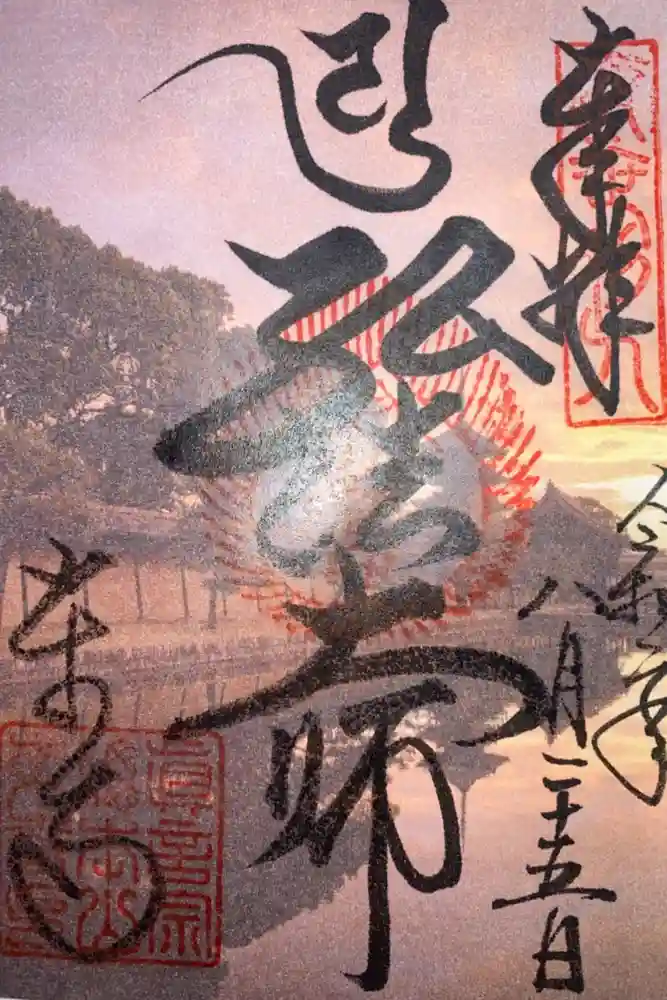 奉拝
令和 年
八月二十五日
弘法大師
東寺
真言宗
總本山